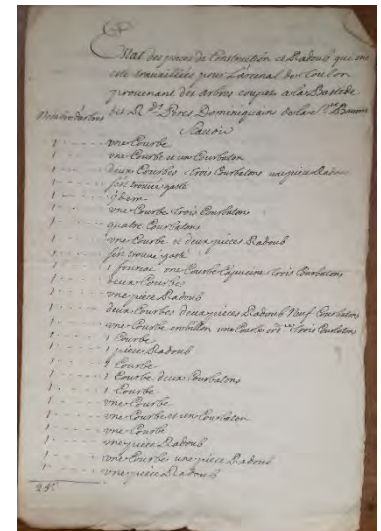 Estat des pieces de Construction et Radoub qui ont
esté travaillées pour L'arcenal de Toulon
provenant des arbres coupés a la Bastide
des R. ds Peres Dominiquains de la Ste Baume
Nombre d'arbres
Sçavoir
1 ..... une Courbe
1 ..... une Courbe et un Courbaton
1 ..... deux Courbes trois Courbatons une piece Radou
1 ..... s'est trouvé gasté
1 ..... ybem
1 ..... une Courbe trois Courbatons
1 ..... quatre Courbatons
1 ..... une Courbe et deux pieces Radoub
1 ..... s'est trouvé gasté
1 ..... 1 une Courbe trois Courbatons
1 ..... deux Courbes
1 ..... une piece Radoub
1 ..... deux Courbes deux pieces Radoub Neuf Courbatons
1 ..... une Courbe une Courbe trois Courbatons
1 ..... 1 Courbe
1 ..... 1 piece Radoub
1 ..... 1 Courbe
1 ..... 1 Courbe deux Courbatons
1 ..... 1 Courbe
1 ..... une Courbe
1 ..... une Courbe et un Courbaton
1 ..... une Courbe
1 ..... une piece Radoub
1 ..... une Courbe une piece Radoub
1 ..... une piece Radoub